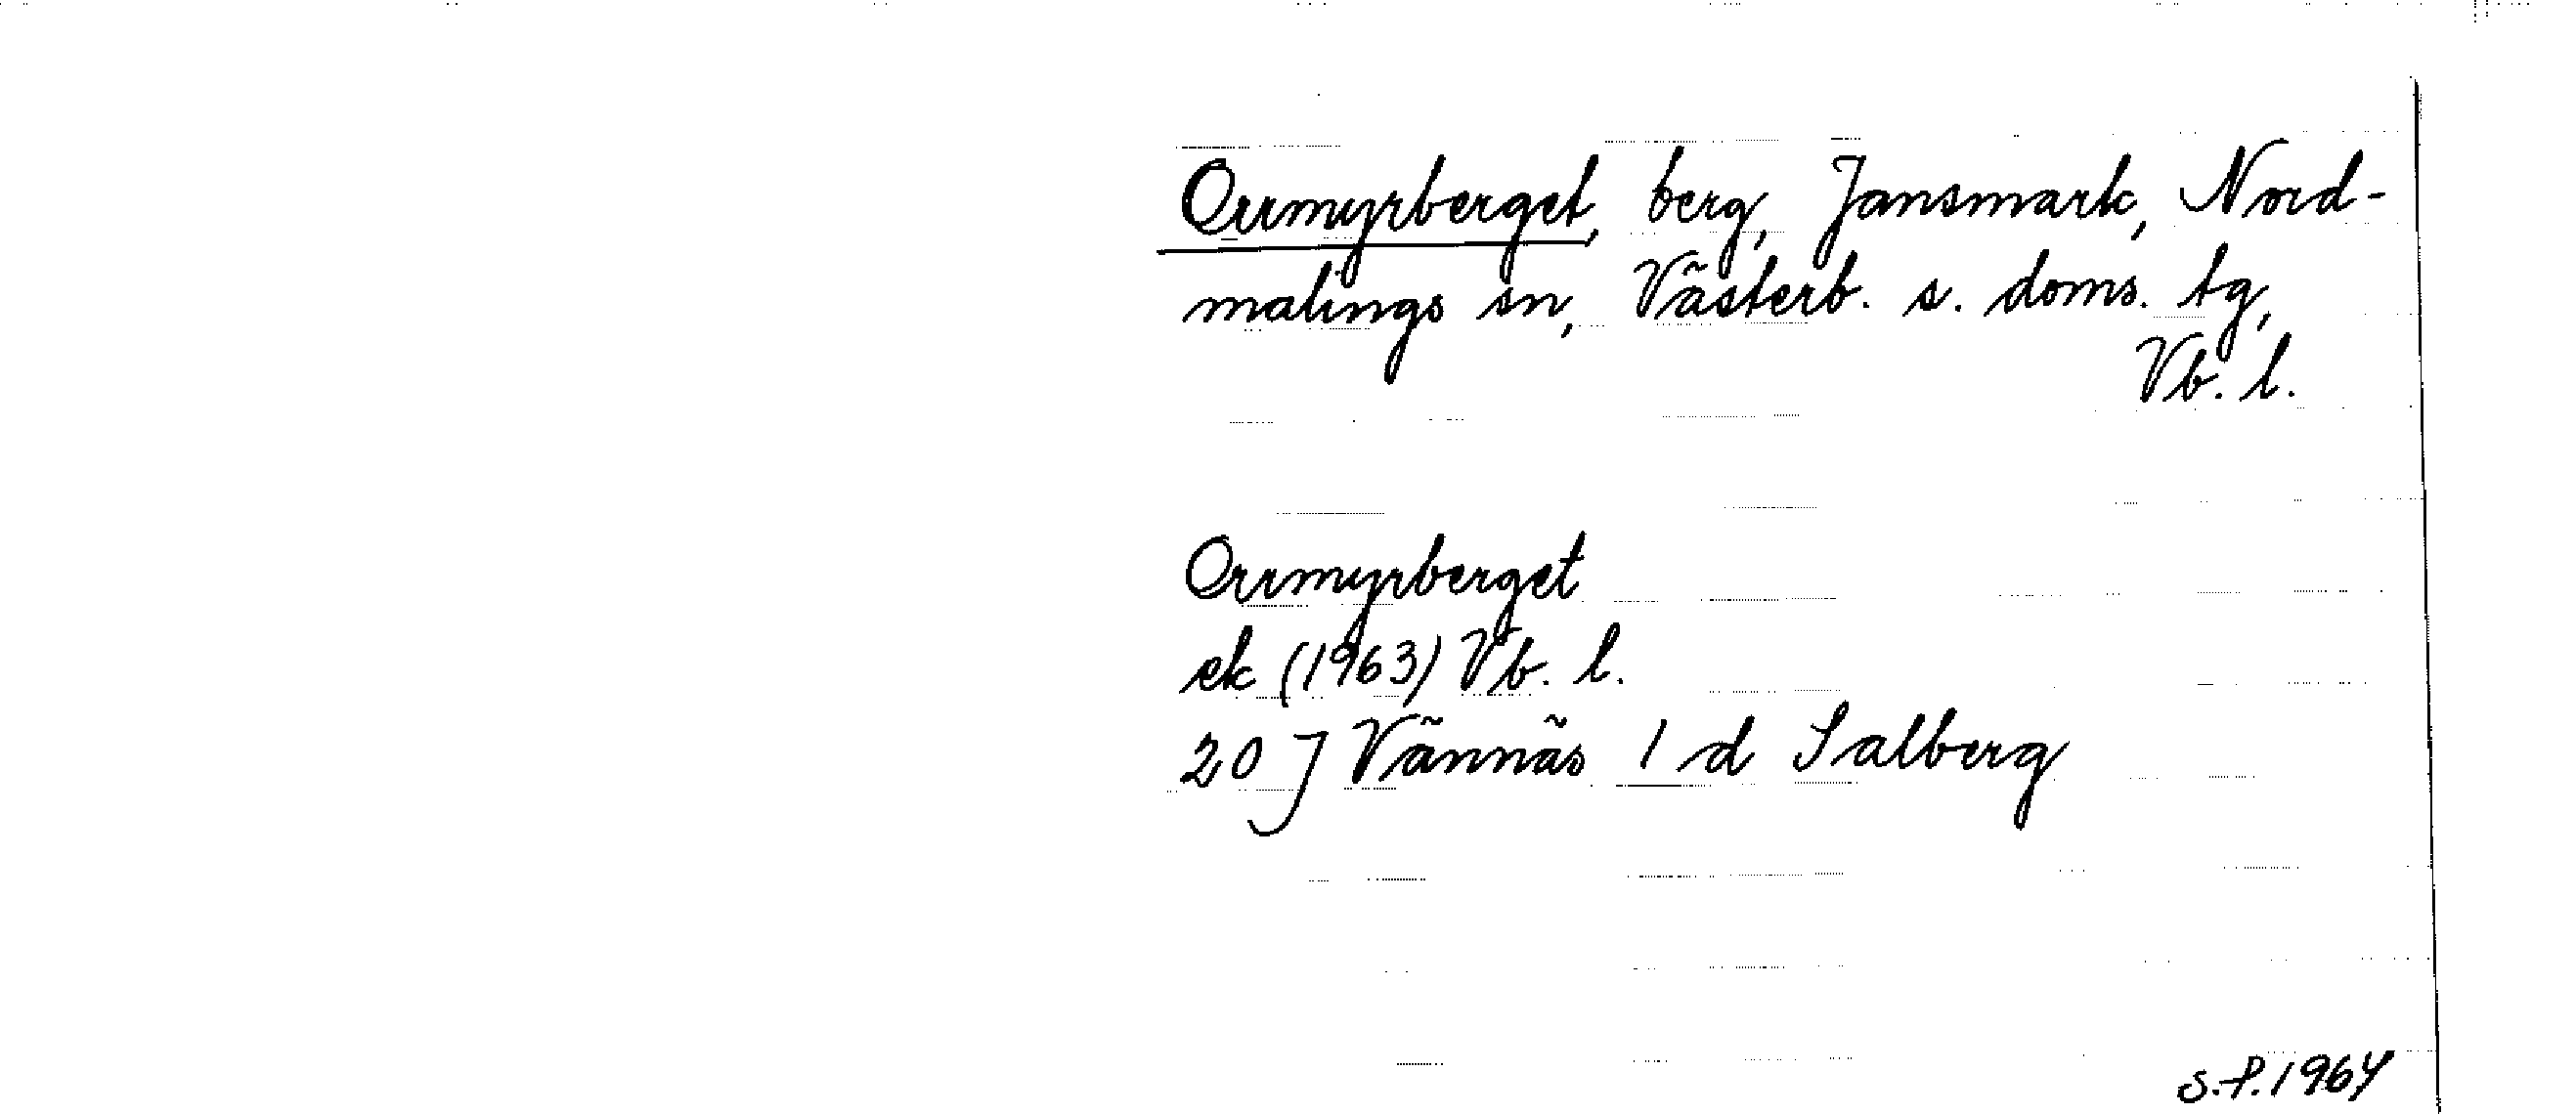 Orrmyrberget, berg, Jansmark, Nord-
malings sn, Västerb. s. doms. tg,
Vb. l.
Orrmyrberget
ek (1963) Vb. l.
20 J Vännäs 1 d Salberg
S.P. 1964